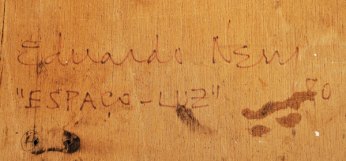 Eduardo Nery
"ESPAÇO-LUZ" 70